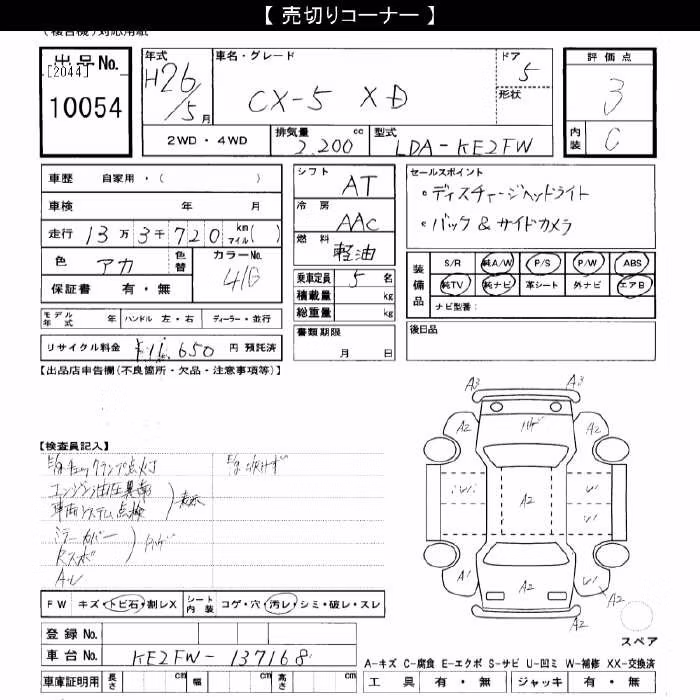 【 売切りコーナー 】
出品No.
[2044]
10054
年式
H26/5月
車名・グレード
CX-5 XD
ドア
5
形状
評価点
3
内装
C
2WD・4WD
排気量
2.200cc
型式
LDA-KE2FW
車歴 自家用・( )
車検 年 月
走行 13万3千720 km マイル( )
色 アカ 色替 カラーNo. 41G
保証書 有・無
シフト AT
冷房 AAC
燃料 軽油
乗車定員 5名
積載量 kg
総重量 kg
書類期限
月 日
セールスポイント
・ディスチャージヘッドライト
・バック&サイドカメラ
装備品
S/R 純A/W P/S P/W ABS
純TV 純ナビ 革シート 外ナビ エアB
ナビ型番:
後日品
モデル年式 年 ハンドル 左・右 ディーラー・並行
リサイクル料金 ¥11,650 円 預託済
【出品店申告欄(不良箇所・欠品・注意事項等)】
【検査員記入】
エンジン油圧異常
車両システム点検
表示
ミラーカバー
A3 A3
A2 A2
A2
A2
A1 A2 A2
A2
FW キズ・トビ石・割レX シート内装 コゲ・穴・汚レ・シミ・破レ・スレ
スペア
登録No.
車台No. KE2FW-137168
車庫証明用 長さ cm 幅 cm 高さ cm
A-キズ C-腐食 E-エクボ S-サビ U-凹ミ W-補修 XX-交換済
工具 有・無 ジャッキ 有・無